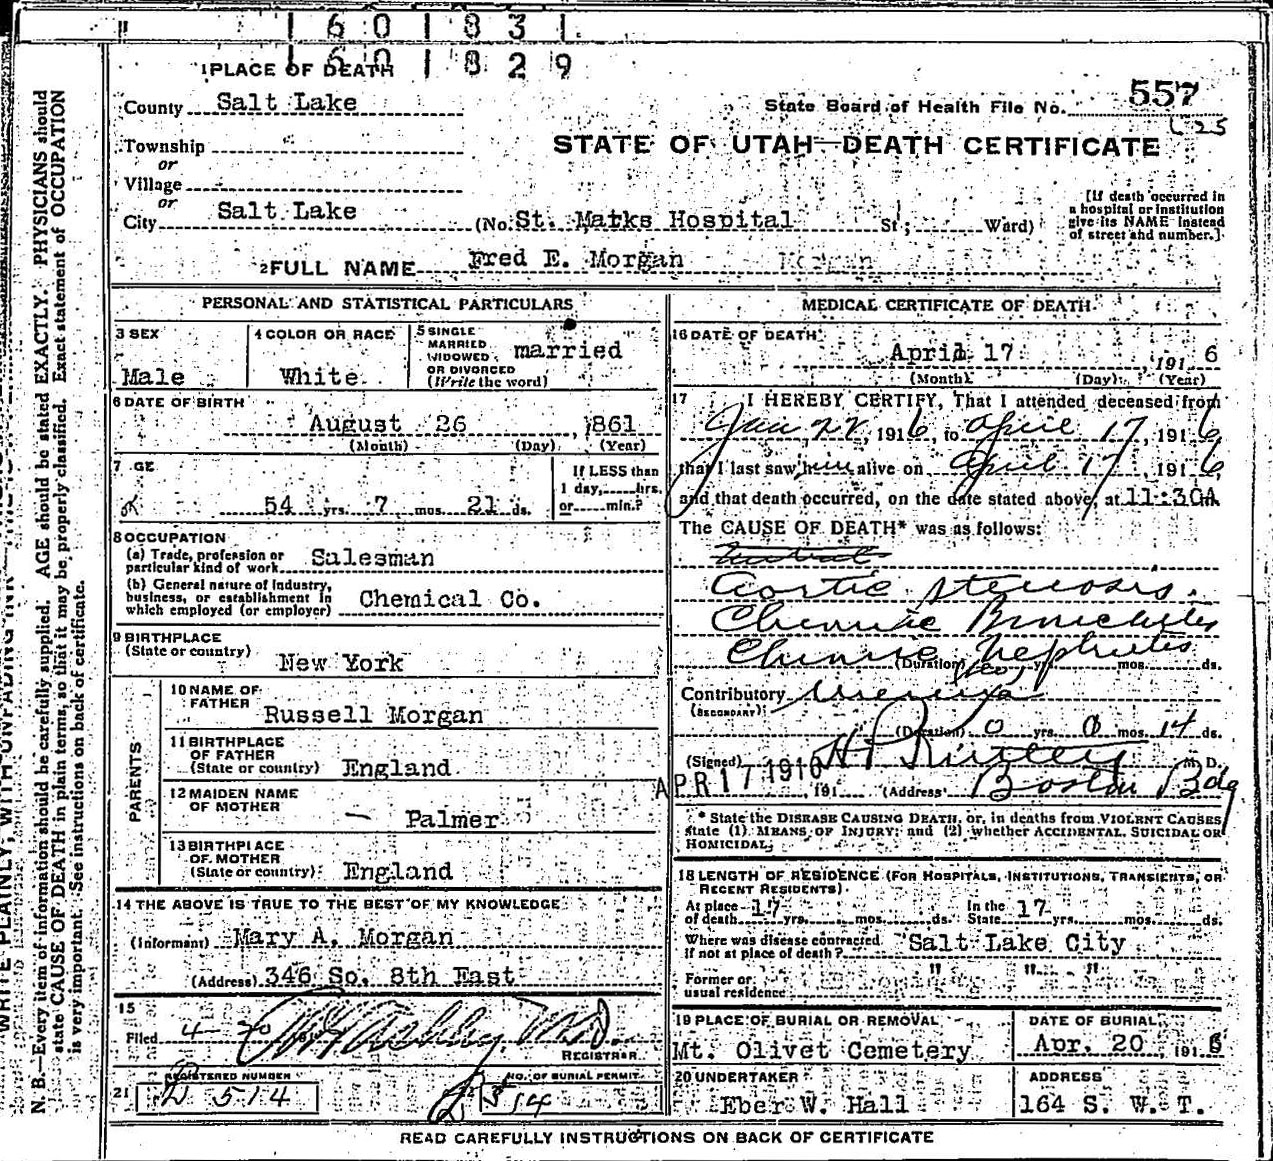 1 60 1 831
1 60 1 829
1 PLACE OF DEATH
County Salt Lake
State Board of Health File No. 557
Township
or
Village
or
City Salt Lake
STATE OF UTAH—DEATH CERTIFICATE
(No. St. Marks Hospital St.; Ward)
[If death occurred in
a hospital or institution
give its NAME instead
of street and number.]
2 FULL NAME Fred E. Morgan
PERSONAL AND STATISTICAL PARTICULARS
3 SEX
Male
4 COLOR OR RACE
White
5 SINGLE
MARRIED
WIDOWED
OR DIVORCED
(Write the word)
married
6 DATE OF BIRTH
August 26, 1861
(Month) (Day) (Year)
7 AGE
54 yrs. 7 mos. 21 ds.
If LESS than
1 day, hrs.
or min.?
8 OCCUPATION
(a) Trade, profession or
particular kind of work Salesman
(b) General nature of Industry,
business, or establishment in
which employed (or employer) Chemical Co.
9 BIRTHPLACE
(State or country)
New York
PARENTS
10 NAME OF
FATHER
Russell Morgan
11 BIRTHPLACE
OF FATHER
(State or country) England
12 MAIDEN NAME
OF MOTHER
— Palmer
13 BIRTHPLACE
OF MOTHER
(State or country) England
14 THE ABOVE IS TRUE TO THE BEST OF MY KNOWLEDGE
(Informant) Mary A. Morgan
(Address) 346 So. 8th East
15
Filed 4-20 191
M.D.
REGISTRAR
REGISTERED NUMBER
21 D 514
NO. OF BURIAL PERMIT
22 514
MEDICAL CERTIFICATE OF DEATH
16 DATE OF DEATH
April 17, 191 6
(Month) (Day) (Year)
17 I HEREBY CERTIFY, That I attended deceased from
Jan 22, 1916, to April 17, 1916
that I last saw him alive on April 17, 1916
and that death occurred, on the date stated above, at 11:30A m.
The CAUSE OF DEATH* was as follows:
Aortic stenosis.
Chronic Bronchitis
Chronic Nephritis
(Duration) yrs. mos. ds.
Contributory Uremia
(SECONDARY)
(Duration) 0 yrs. 0 mos. 14 ds.
(Signed) M. D.
APR 17 1916, 191 (Address) Boston Bdg
* State the DISEASE CAUSING DEATH, or, in deaths from VIOLENT CAUSES,
state (1) MEANS OF INJURY; and (2) whether ACCIDENTAL, SUICIDAL OR
HOMICIDAL.
18 LENGTH OF RESIDENCE (FOR HOSPITALS, INSTITUTIONS, TRANSIENTS, OR
RECENT RESIDENTS)
At place
of death 17 yrs. mos. ds.
In the
State 17 yrs. mos. ds.
Where was disease contracted
If not at place of death? Salt Lake City
Former or
usual residence " " "
19 PLACE OF BURIAL OR REMOVAL
Mt. Olivet Cemetery
DATE OF BURIAL
Apr. 20, 191 6
20 UNDERTAKER
Eber W. Hall
ADDRESS
164 S. W. T.
READ CAREFULLY INSTRUCTIONS ON BACK OF CERTIFICATE
WRITE PLAINLY, WITH UNFADING INK
N. B.—Every item of information should be carefully supplied. AGE should be stated EXACTLY. PHYSICIANS should
state CAUSE OF DEATH in plain terms, so that it may be properly classified. Exact statement of OCCUPATION
is very important. See instructions on back of certificate.